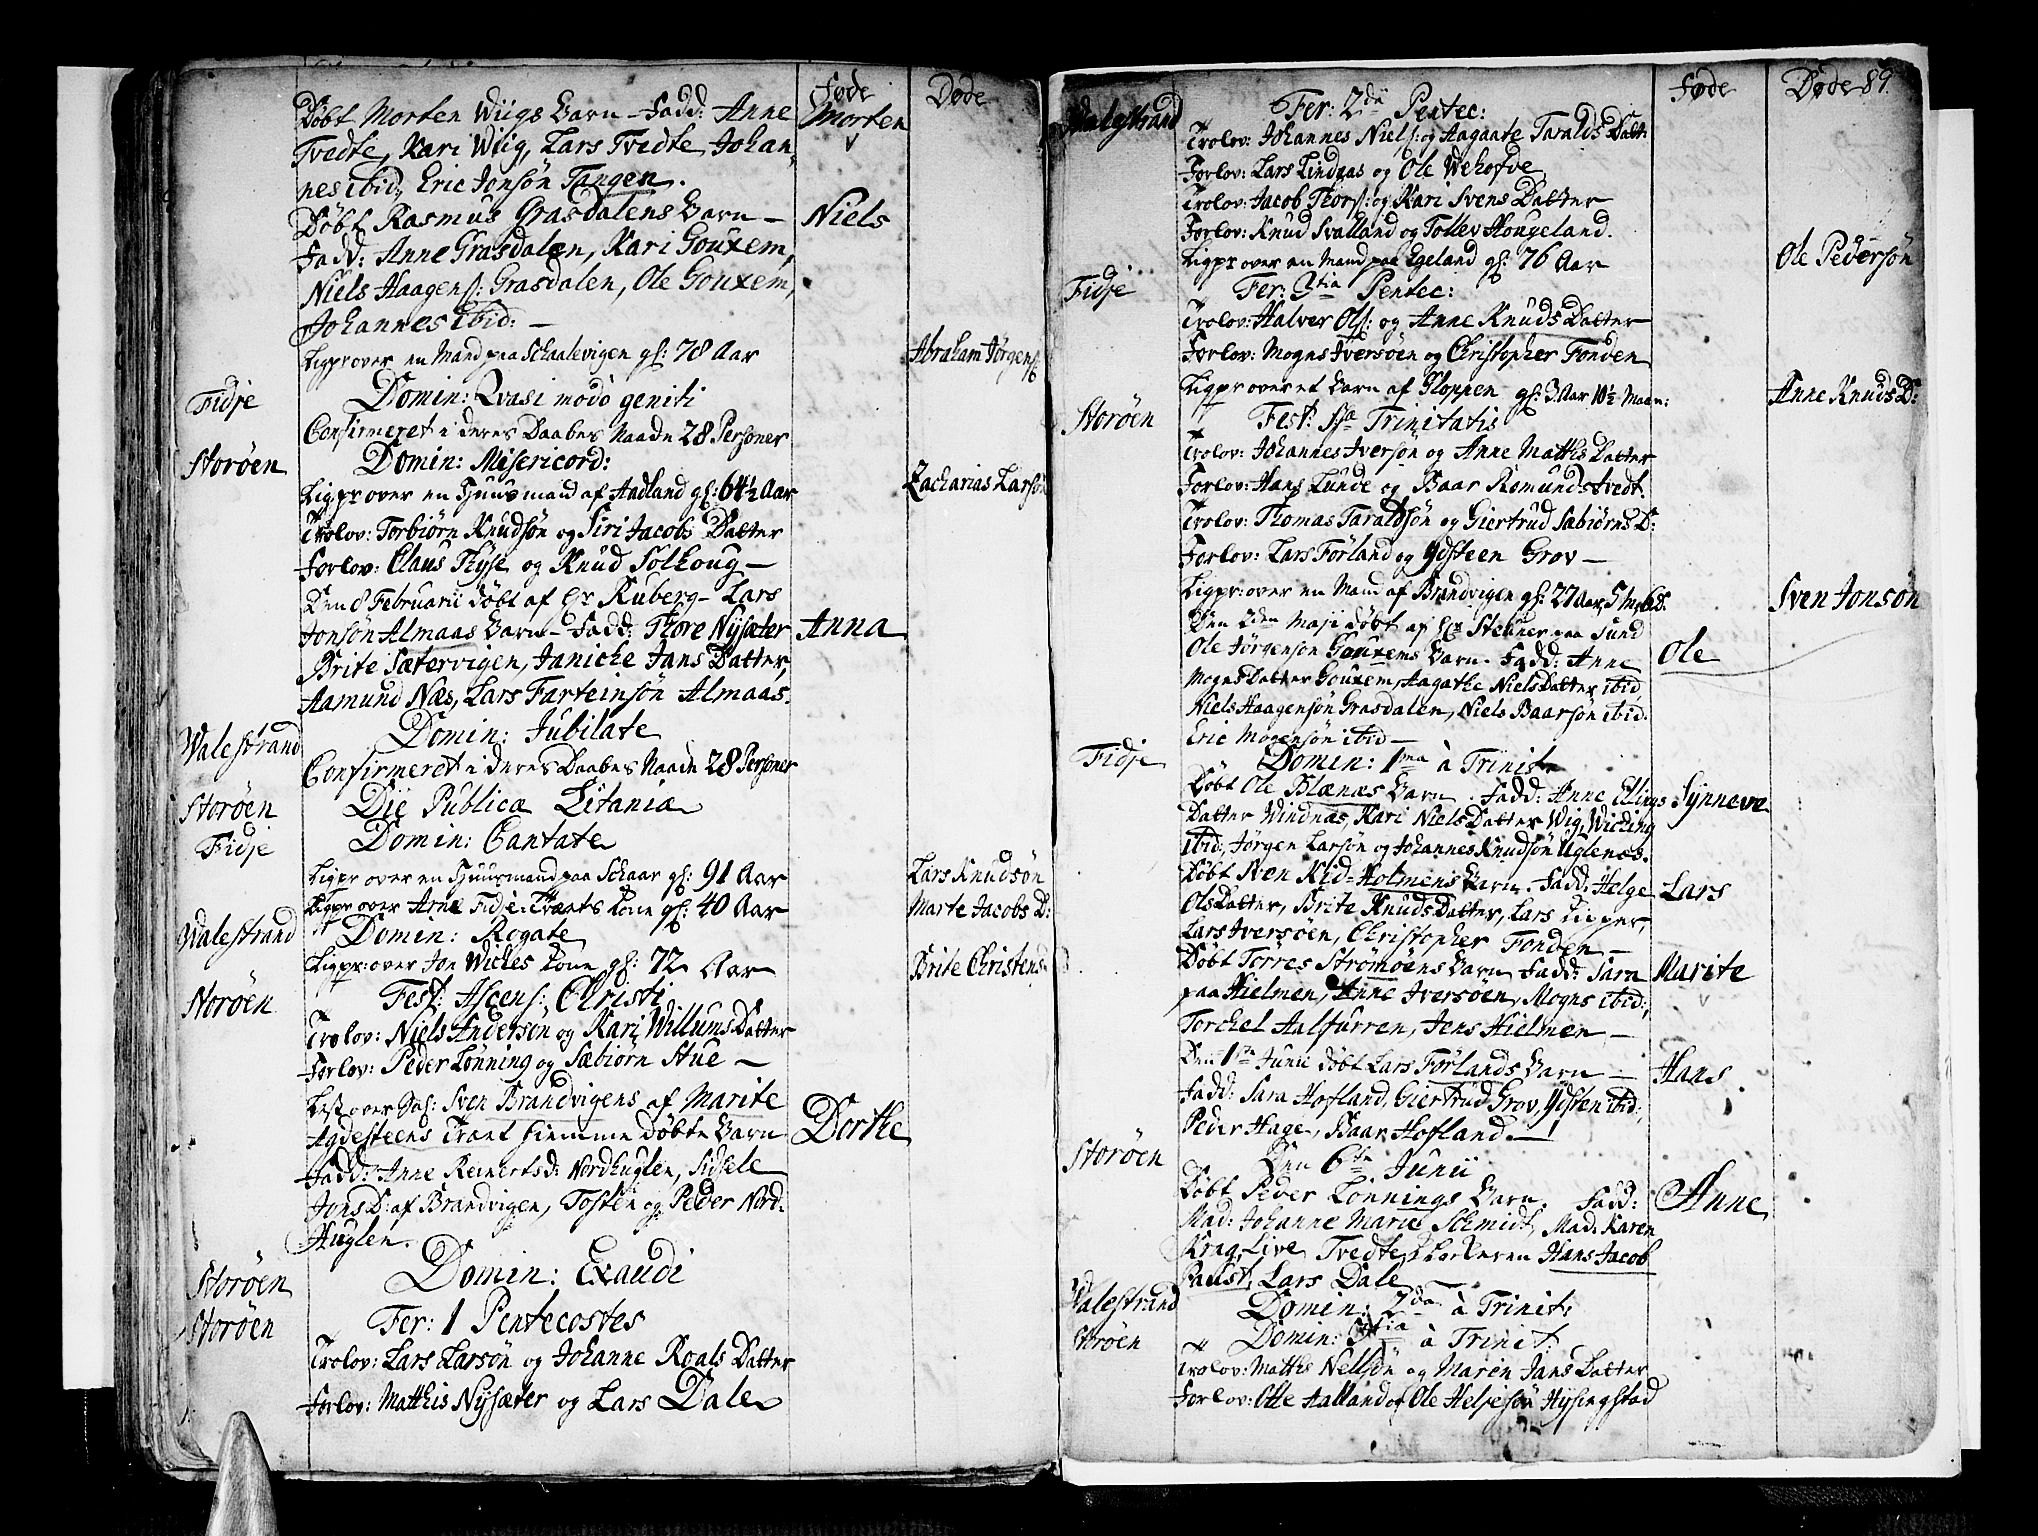 Føde
Døde
Døbt Morten Wiigs Barn - Fadd: Anne Morten
Tvedte, Kari Wiig, Lars Tvedte, Johan-
nes ibid, Eric Jonsön Tangen.
Døbt Rasmus Grasdalens Barn - Niels
Fadd: Anne Grasdalen, Kari Gouxem,
Niels Haagens: Grasdalen, Ole Gouxem,
Johannes ibid: -
Ligpr over en Mand paa Schaalevigen gl: 78 Aar Abraham Jörgens:
Fidje Domin: Qvasi modo geniti
Confirmeret i deres Daabes Naade 28 Personer
Storøen Domin: Misericord:
Ligpr over en Huusmand af Aadland gl: 64½ Aar Zacharias Larsön
Trolov: Torbiörn Knudsön og Siri Jacobs Datter
Forlov: Claus Thyse og Knud Solhoug -
Den 8 Februarii døbt af Hr Ruberg - Lars
Jonsön Almaas Barn - Fadd: Thore Nysæter Anna
Brite Sætervigen, Janiche Jans Datter,
Aamund Næs, Lars Farteinsön Almaas.
Walestrand Domin: Jubilate
Confirmeret i deres Daabes Naade 28 Personer
Storøen Die Publicæ Litaniæ
Fidje Domin: Cantate
Ligpr over en Huusmand paa Schaar gl: 91 Aar Lars Knudsön
Ligpr over Arne Fidje Trants Kone gl: 40 Aar Marte Jacobs D:
Walestrand Domin: Rogate
Ligpr: over Jon Wickes Kone gl: 72 Aar Brite Christens:
Storøen Fest: Ascens: Christi
Trolov: Niels Andersön og Kari Willums Datter
Forlov: Peder Lönning og Sæbiörn Stue -
Læst over Sal: Sven Brandvigens af Marite
Agdesteens Trant hiemme døbte Barn Dorthe
Fadd: Anne Reinertsd: Nordhuglen, Sidsele
Jons D: af Brandvigen, Tosten og Peder Nord-
Huglen.
Storøen Domin: Exaudi
Storøen Fer: 1 Pentecostes
Trolov: Lars Larsön og Johanne Roals Datter
Forlov: Matthis Nysæter og Lars Dale
Føde
Døde 89.
Walestrand Fer: 2da Pentec:
Trolov: Johannes Niels: og Aagaate Taralds Datt:
Forlov: Lars Lindaas og Ole Wehofde
Trolov: Jacob Thors: og Kari Svens Datter
Forlov: Knud Svalland og Tollev Hougeland.
Ligpr over en Mand paa Egeland gl: 76 Aar Ole Pedersön
Fidje Fer: 3tia Pentec:
Trolov: Halver Ols: og Anne Knuds Datter
Forlov: Mogns Iversöen og Christopher Fonden
Ligpr over et Barn af Kloppen gl: 3 Aar 10½ Maan: Anne Knuds D:
Storøen Fest: Stæ Trinitatis
Trolov: Johannes Iversön og Anne Matthis Datter
Forlov: Hans Lunde og Baar Romundstvedt.
Trolov: Thomas Taraldsön og Giertrud Sæbiörns D:
Forlov: Lars Förland og Ydsteen Grov -
Ligpr: over en Mand af Brandvigen gl: 27 Aar, 5 M, 6 D. Sven Jonsön
Den 2den Maji døbt af Hr Stebner paa Sund
Ole Jörgensön Gouxems Barn. Fadd: Anne Ole
Mogns Datter Gouxem, Aagathe Niels Datter ibid
Niels Haagensön Grasdalen, Niels Baarsön ibid.
Eric Mogensön ibid -
Fidje Domin: 1ma à Trinit
Døbt Ole Blænæs Barn. Fadd: Anne Ellings Synneve
Datter Windnæs, Kari Niels Datter Wig, Wiching
ibid: Jörgen Larsön og Johannes Knudsön Uglenæs.
Døbt Sven Kid-Holmens Barn. Fadd: Helge Lars
Ols Datter, Brite Knuds Datter, Lars Kipper,
Lars Iversöen, Christopher Fonden -
Døbt Törres Strömöens Barn Fadd: Sara Marite
paa Hielmen, Anne Iversöen, Mogns ibid:,
Torchel Aalfurren, Jens Hielmen -
Den 1ste Junii døbt Lars Förlands Barn - Hans
Fadd: Sara Hofland, Giertrud Grov, Ydsten ibid;
Peder Hage, Baar Hofland. -
Storøen Den 6te Junii
Døbt Peder Lönnings Barn Fadd: Anne
Mad: Johanne Marie Schmidt, Mad: Karen
Krag, Live Tvedte, Klockeren Hans Jacob
Faust, Lars Dale
Walestrand Domin: 2da à Trinit:
Storøen Domin: 3tia à Trinit:
Trolov: Mathis Nellsön og Maren Jans Datter
Forlov: Otte Aalland og Ole Helgesön Hysingstad